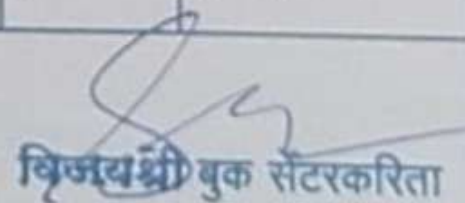 विजयश्री बुक सेंटरकरिता